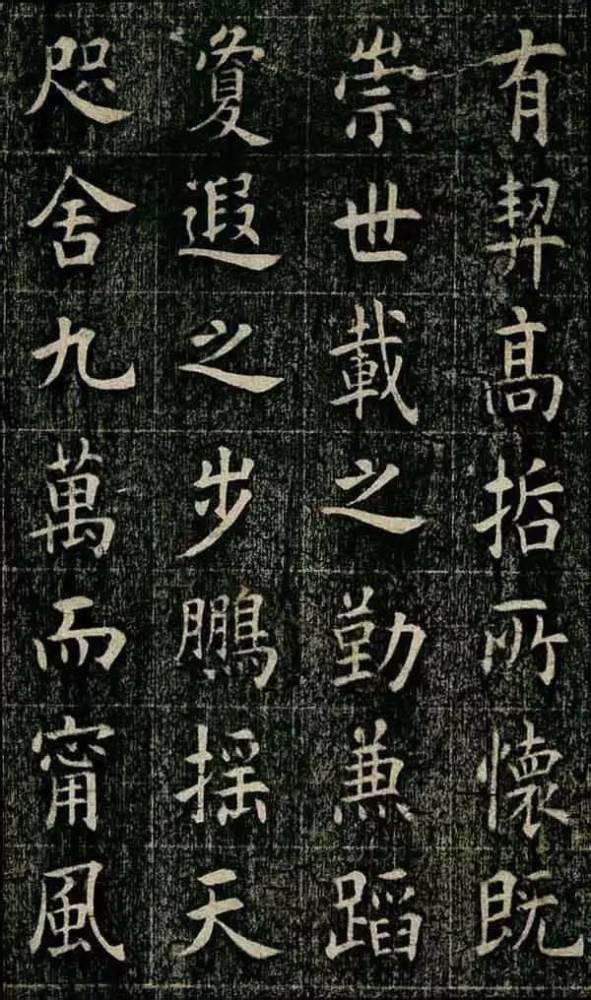 有契髙哲所懷既
崇世載之勤兼蹈
敻遐之步鵬摇天
咫舍九萬而甯風